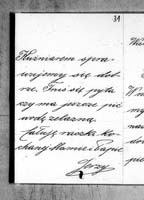 31
Kuzniarem spra-
wujemy się dob-
rze. Tnis się pyta
czy ma jeszcze pić
wodę żelazną.
Całuję rączki ko-
chanej Mamie i Papie
Jerzy